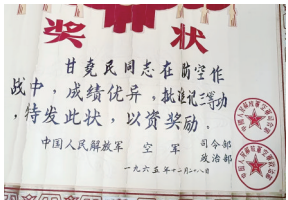 奖状
甘克民同志在防空作
战中，成绩优异，批准记三等功
，待发此状，以资奖励。
中国人民解放军 空军 司令部
政治部
一九六五年十二月二八日